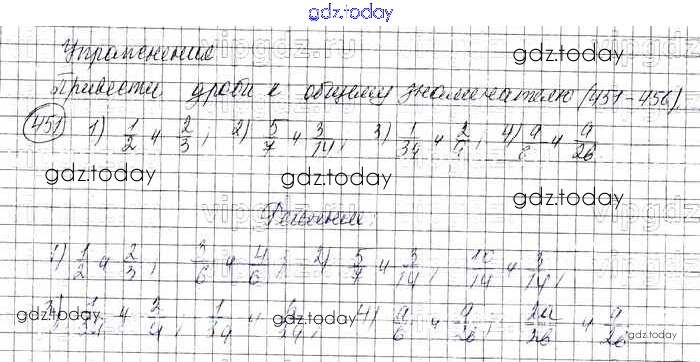 gdz.today
Упражнения
gdz.today
Привести дроби к общему знаменателю (451-456).
451 1) 1/2 и 2/3, 2) 5/7 и 3/14, 3) 1/34 и 4) а и а/2б
gdz.today gdz.today gdz.today
Решение:
1) 1/2 и 2/3, 3/6 и 4/6; 2) 5/7 и 3/14, 10/14 и 3/14,
и 4) а/б и а/2б; 2а/2б и а/2б
gdz.today gdz.today gdz.today